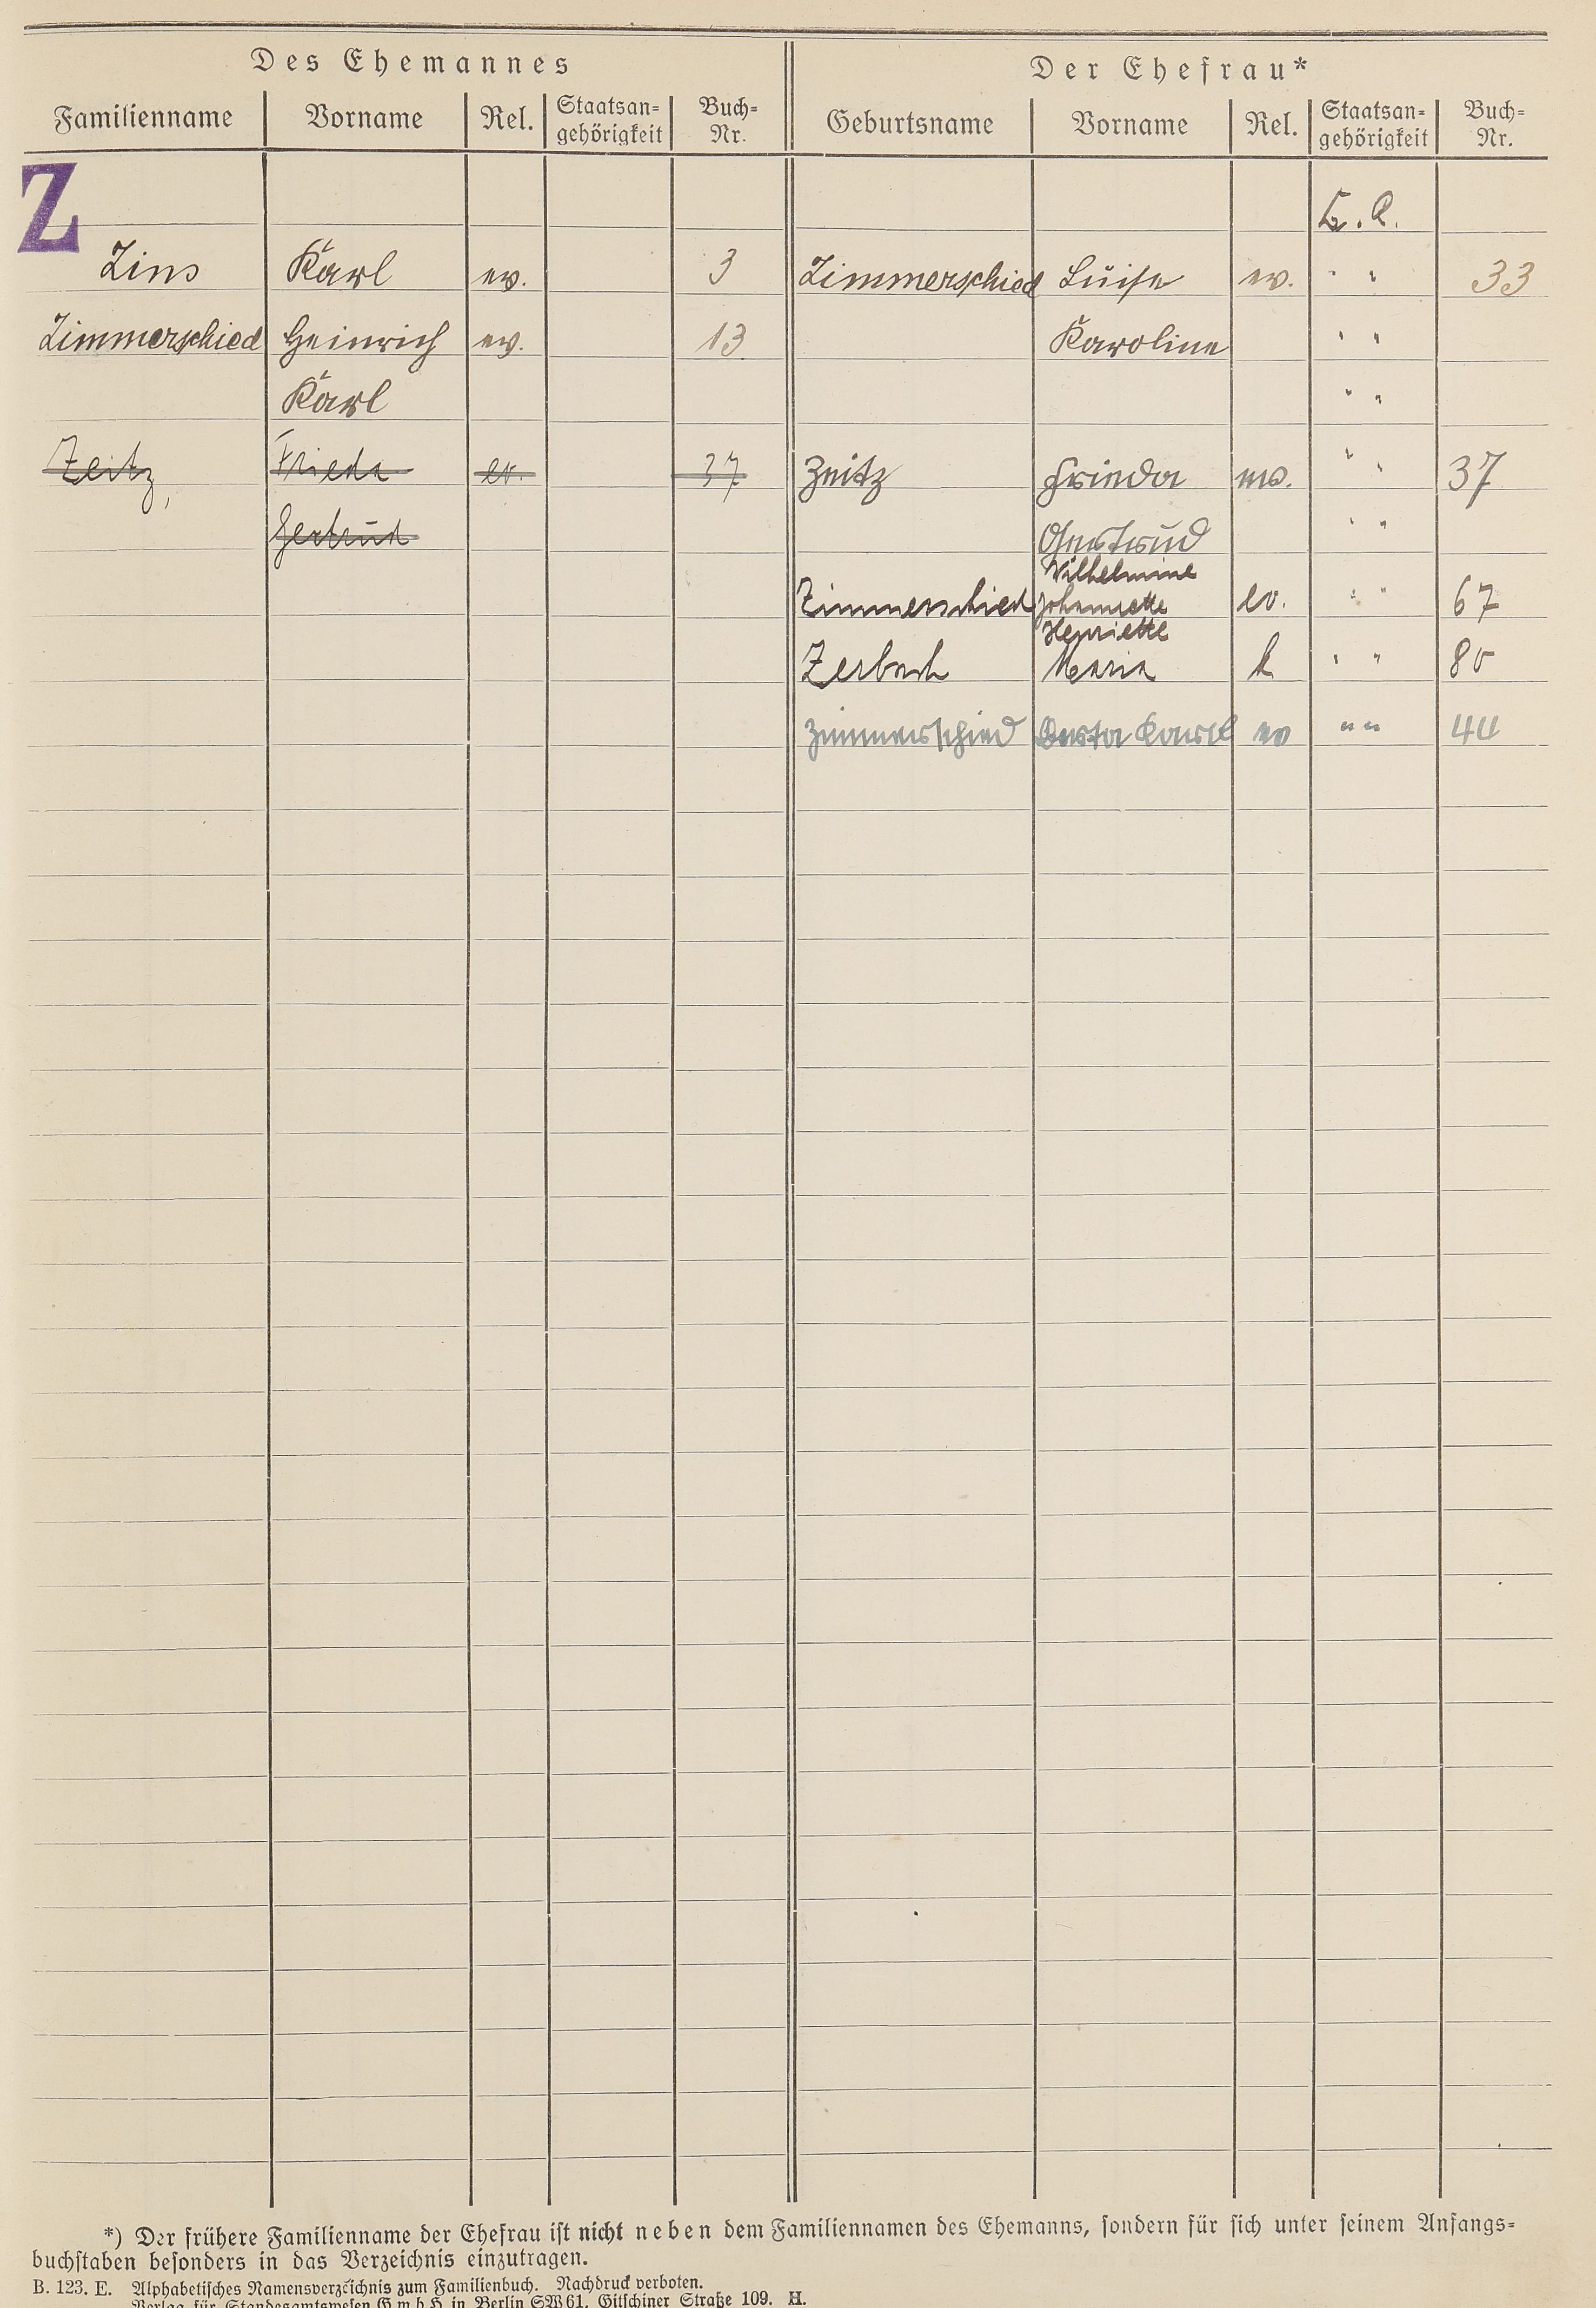 Des Ehemannes Der Ehefrau*
Familienname Vorname Rel. Staatsan- Buch- Geburtsname Vorname Rel. Staatsan- Buch-
gehörigkeit Nr. gehörigkeit Nr.
Z
Zins Karl ev. 3 Zimmerschied Luise ev. " " 33
Zimmerschied Heinrich ev. 13 Karoline " "
Karl " "
Zeitz, Frieda ev. 37 Zeitz Frieda ev. " " 37
Gertrud Gertrud " "
Wilhelmine
Zimmerschied Johannette ev. " " 67
Henriette
Maria k " " 80
Zimmerschied ev " " 44
*) Der frühere Familienname der Ehefrau ist nicht neben dem Familiennamen des Ehemanns, sondern für sich unter seinem Anfangs-
buchstaben besonders in das Verzeichnis einzutragen.
B. 123. E. Alphabetisches Namensverzeichnis zum Familienbuch. Nachdruck verboten.
Verlag für Standesamtswesen G.m.b.H. in Berlin SW 61, Gitschiner Straße 109. H.